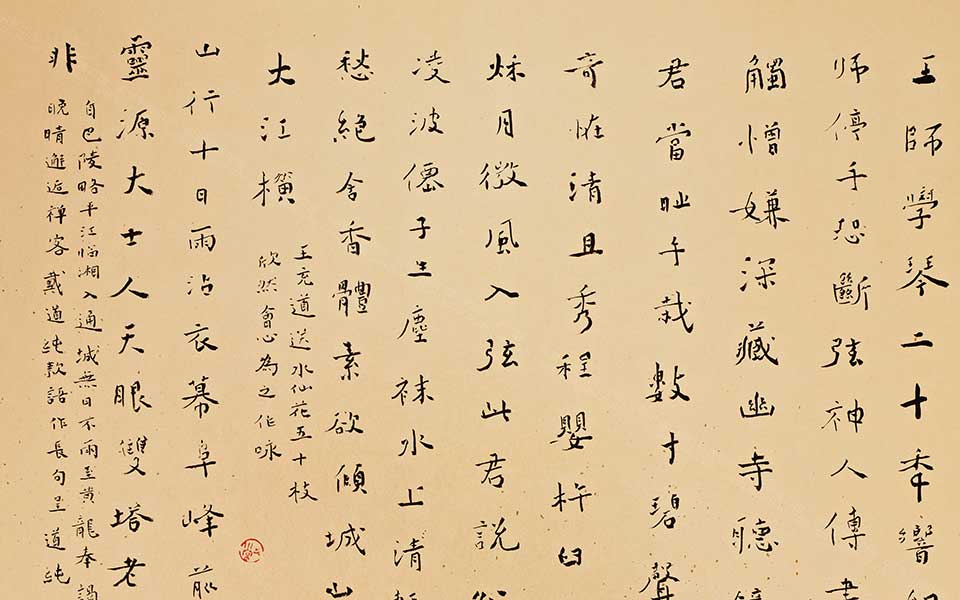 王師學琴二十秊響
師停手恐斷弦神人傳書
觸憎嫌深藏幽寺聽
君當時手栽數寸碧聲
奇恠清且秀程嬰杵臼
秌月微風入弦此君說
凌波僊子生塵袜水上清
愁絕含香體素欲傾城山
大江橫
王充道送水仙花五十枝
欣然會心為之作咏
山行十日雨沾衣幕阜峰前
靈源大士人天眼雙塔老
非
自巴陵略平江臨湘入通城無日不雨至黃龍奉謁
晚晴邂逅禪客戴道純款語作長句呈道純